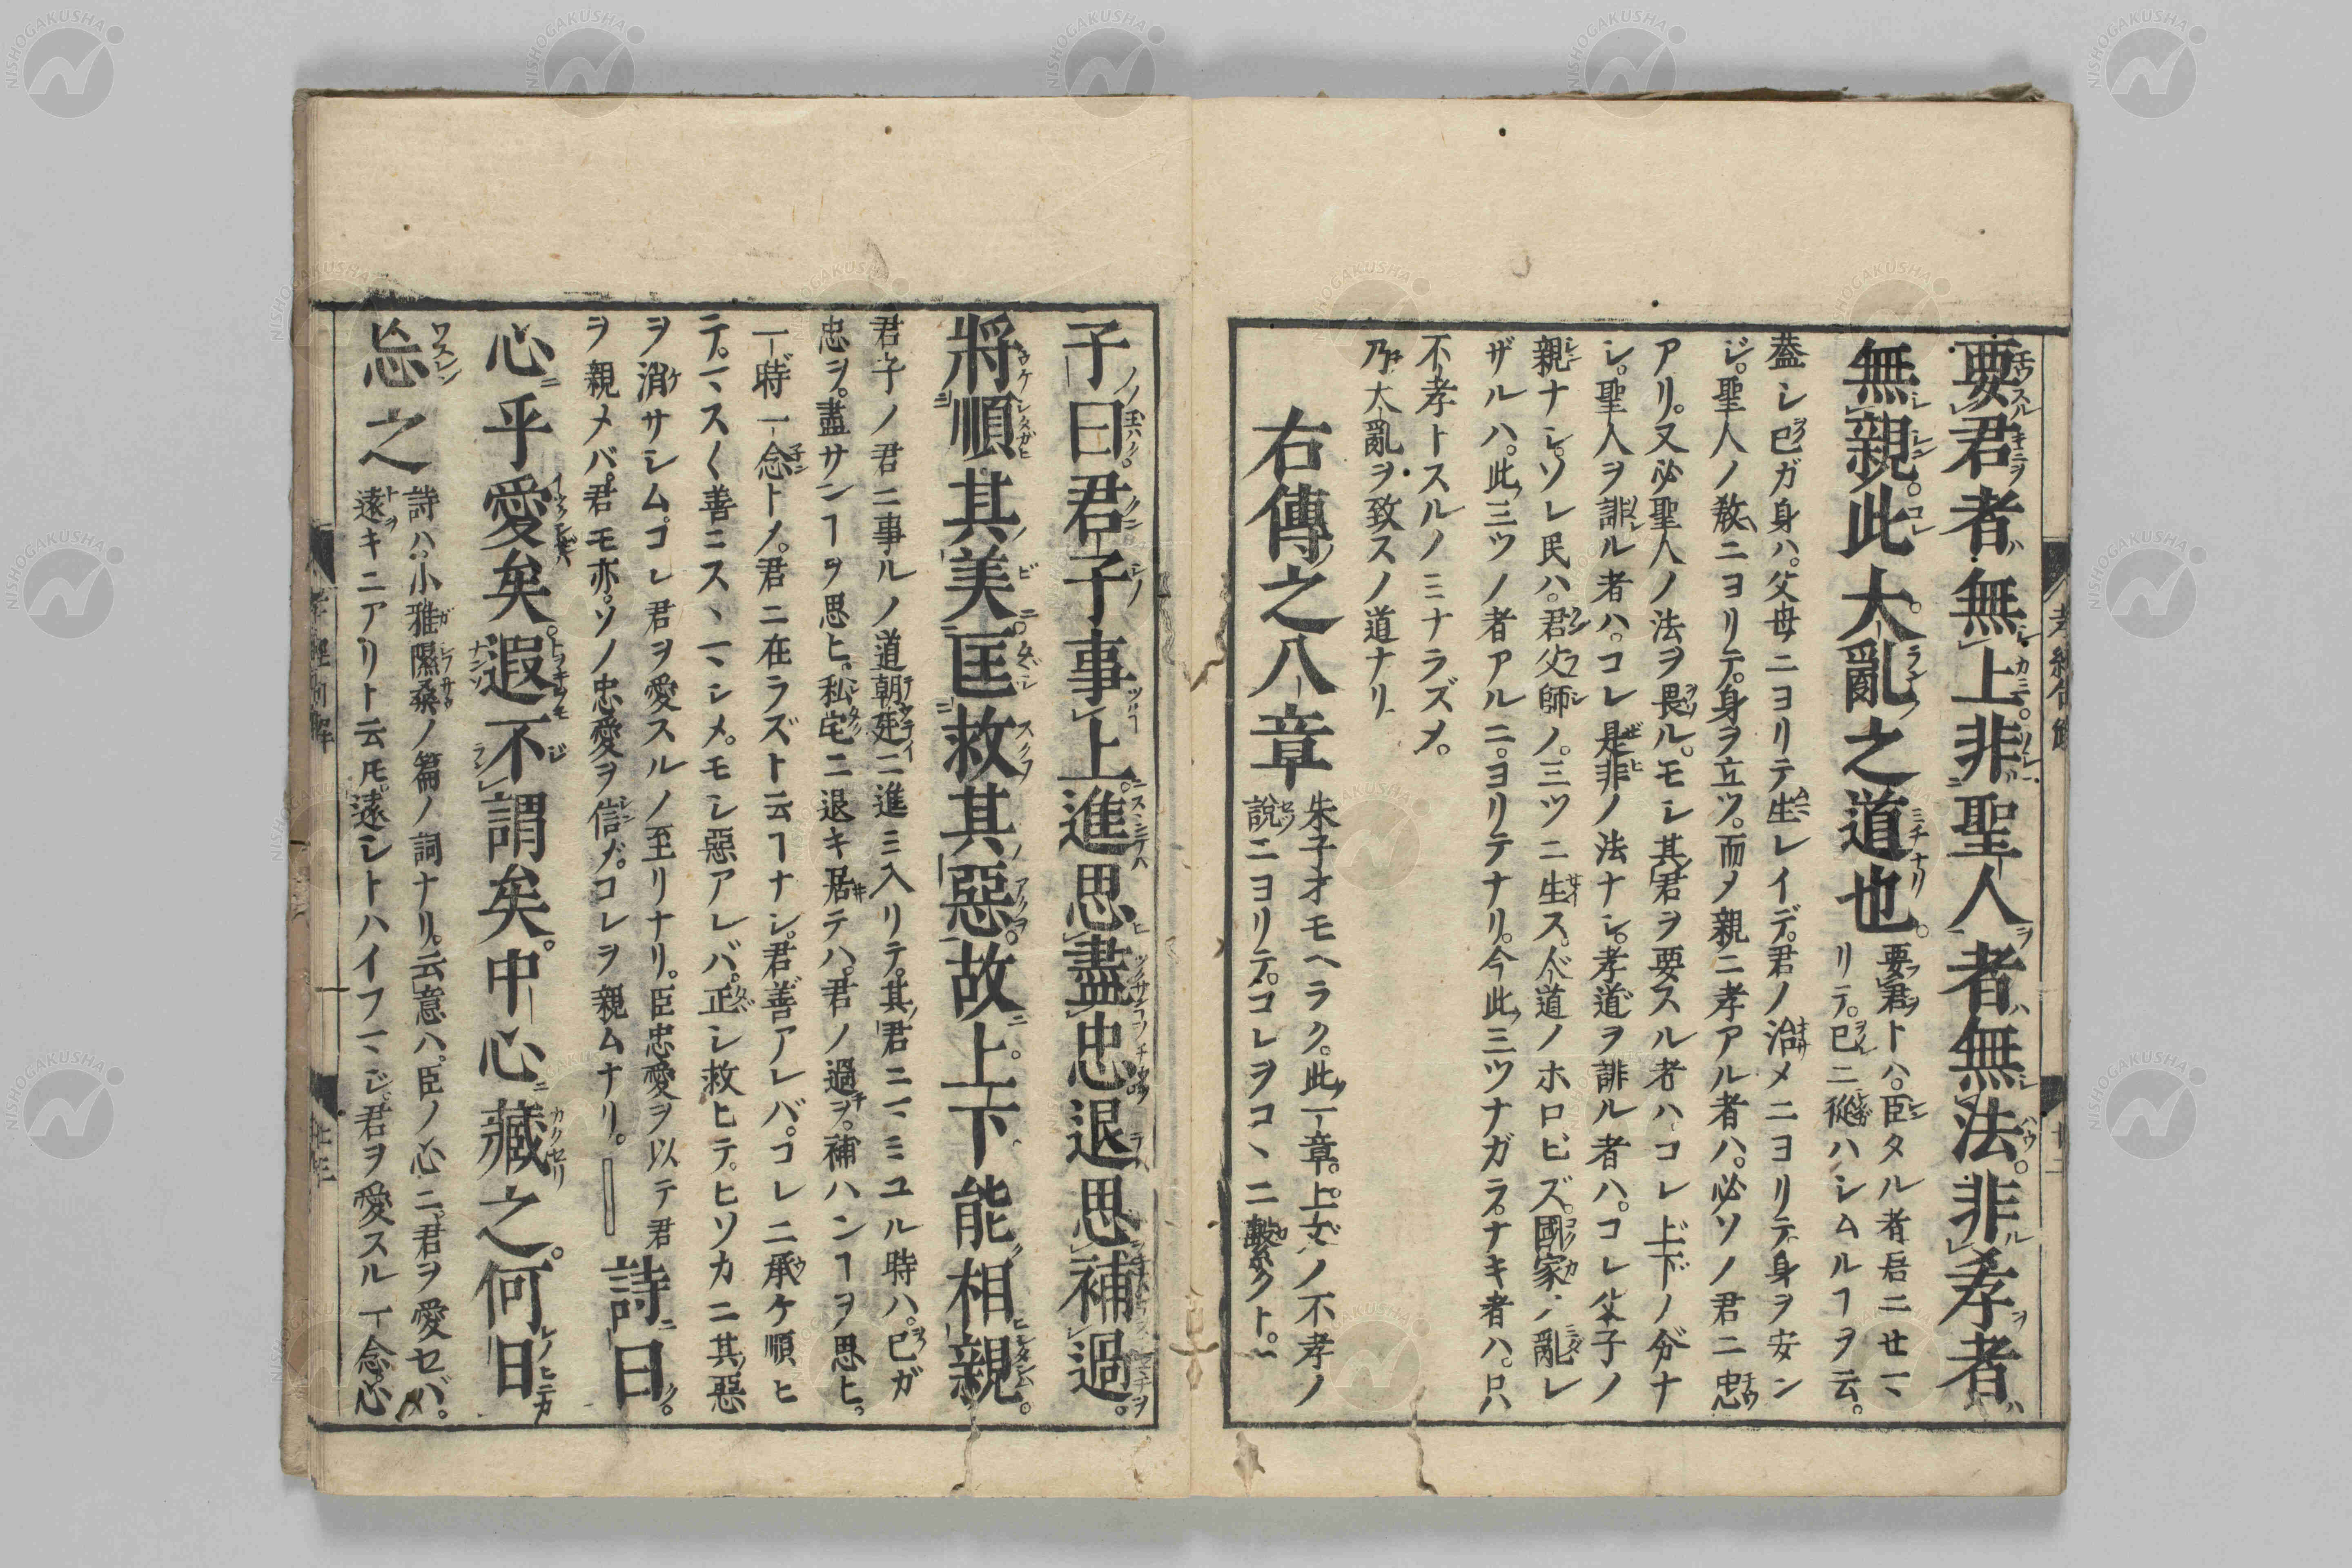 要君者無上非聖人者無法非孝者
無親此大亂之道也
要君トハ臣タル者君ニセマヽ
リテ己ニ從ハシムルヿヲ云
蓋シ己ガ身ハ父母ニヨリテ生レイデ君ノ治メニヨリテ身ヲ安ン
ジ聖人ノ教ニヨリテ身ヲ立ツ而メ親ニ孝アル者ハ必ソノ君ニ忠
アリ又必聖人ノ法ヲ畏ルモシ其君ヲ要スル者ハコレ上下ノ分ナ
シ聖人ヲ誹ル者ハコレ是非ノ法ナシ孝道ヲ誹ル者ハコレ父子ノ
親ナシソレ民ハ君父師ノ三ツニ生ス人道ノホロビズ國家ノ亂レ
ザルハ此三ツノ者アルニヨリテナリ今此三ツナガラナキ者ハ只
不孝トスルノミナラズメ
乃大亂ヲ致スノ道ナリ
右傳之八章
朱子オモヘラク此一章上文ノ不孝ノ
説ニヨリテコレヲコヽニ繋クト
子曰君子事上進思盡忠退思補過
將順其美匡救其惡故上下能相親
君子ノ君ニ事ルノ道朝廷ニ進ミ入リテ其君ニマミユル時ハ己ガ
忠ヲ盡サンヿヲ思ヒ私宅ニ退キ居テハ君ノ過ヲ補ハンヿヲ思ヒ
一時一念トメ君ニ在ラズト云ヿナシ君善アレバコレニ承ケ順ヒ
テマスく善ニスヽマシメモシ惡アレバ正シ救ヒテヒソカニ其惡
ヲ消サシムコレ君ヲ愛スルノ至リナリ臣忠愛ヲ以テ君
ヲ親メバ君モ亦ソノ忠愛ヲ信メコレヲ親ムナリ
詩曰
心乎愛矣遐不謂矣中心藏之何日
忘之
詩ハ小雅隰桑ノ篇ノ詞ナリ云意ハ臣ノ心ニ君ヲ愛セバ
遠キニアリト云モ遠シトハイフマジ君ヲ愛スル一念心
孝經句解
廿二